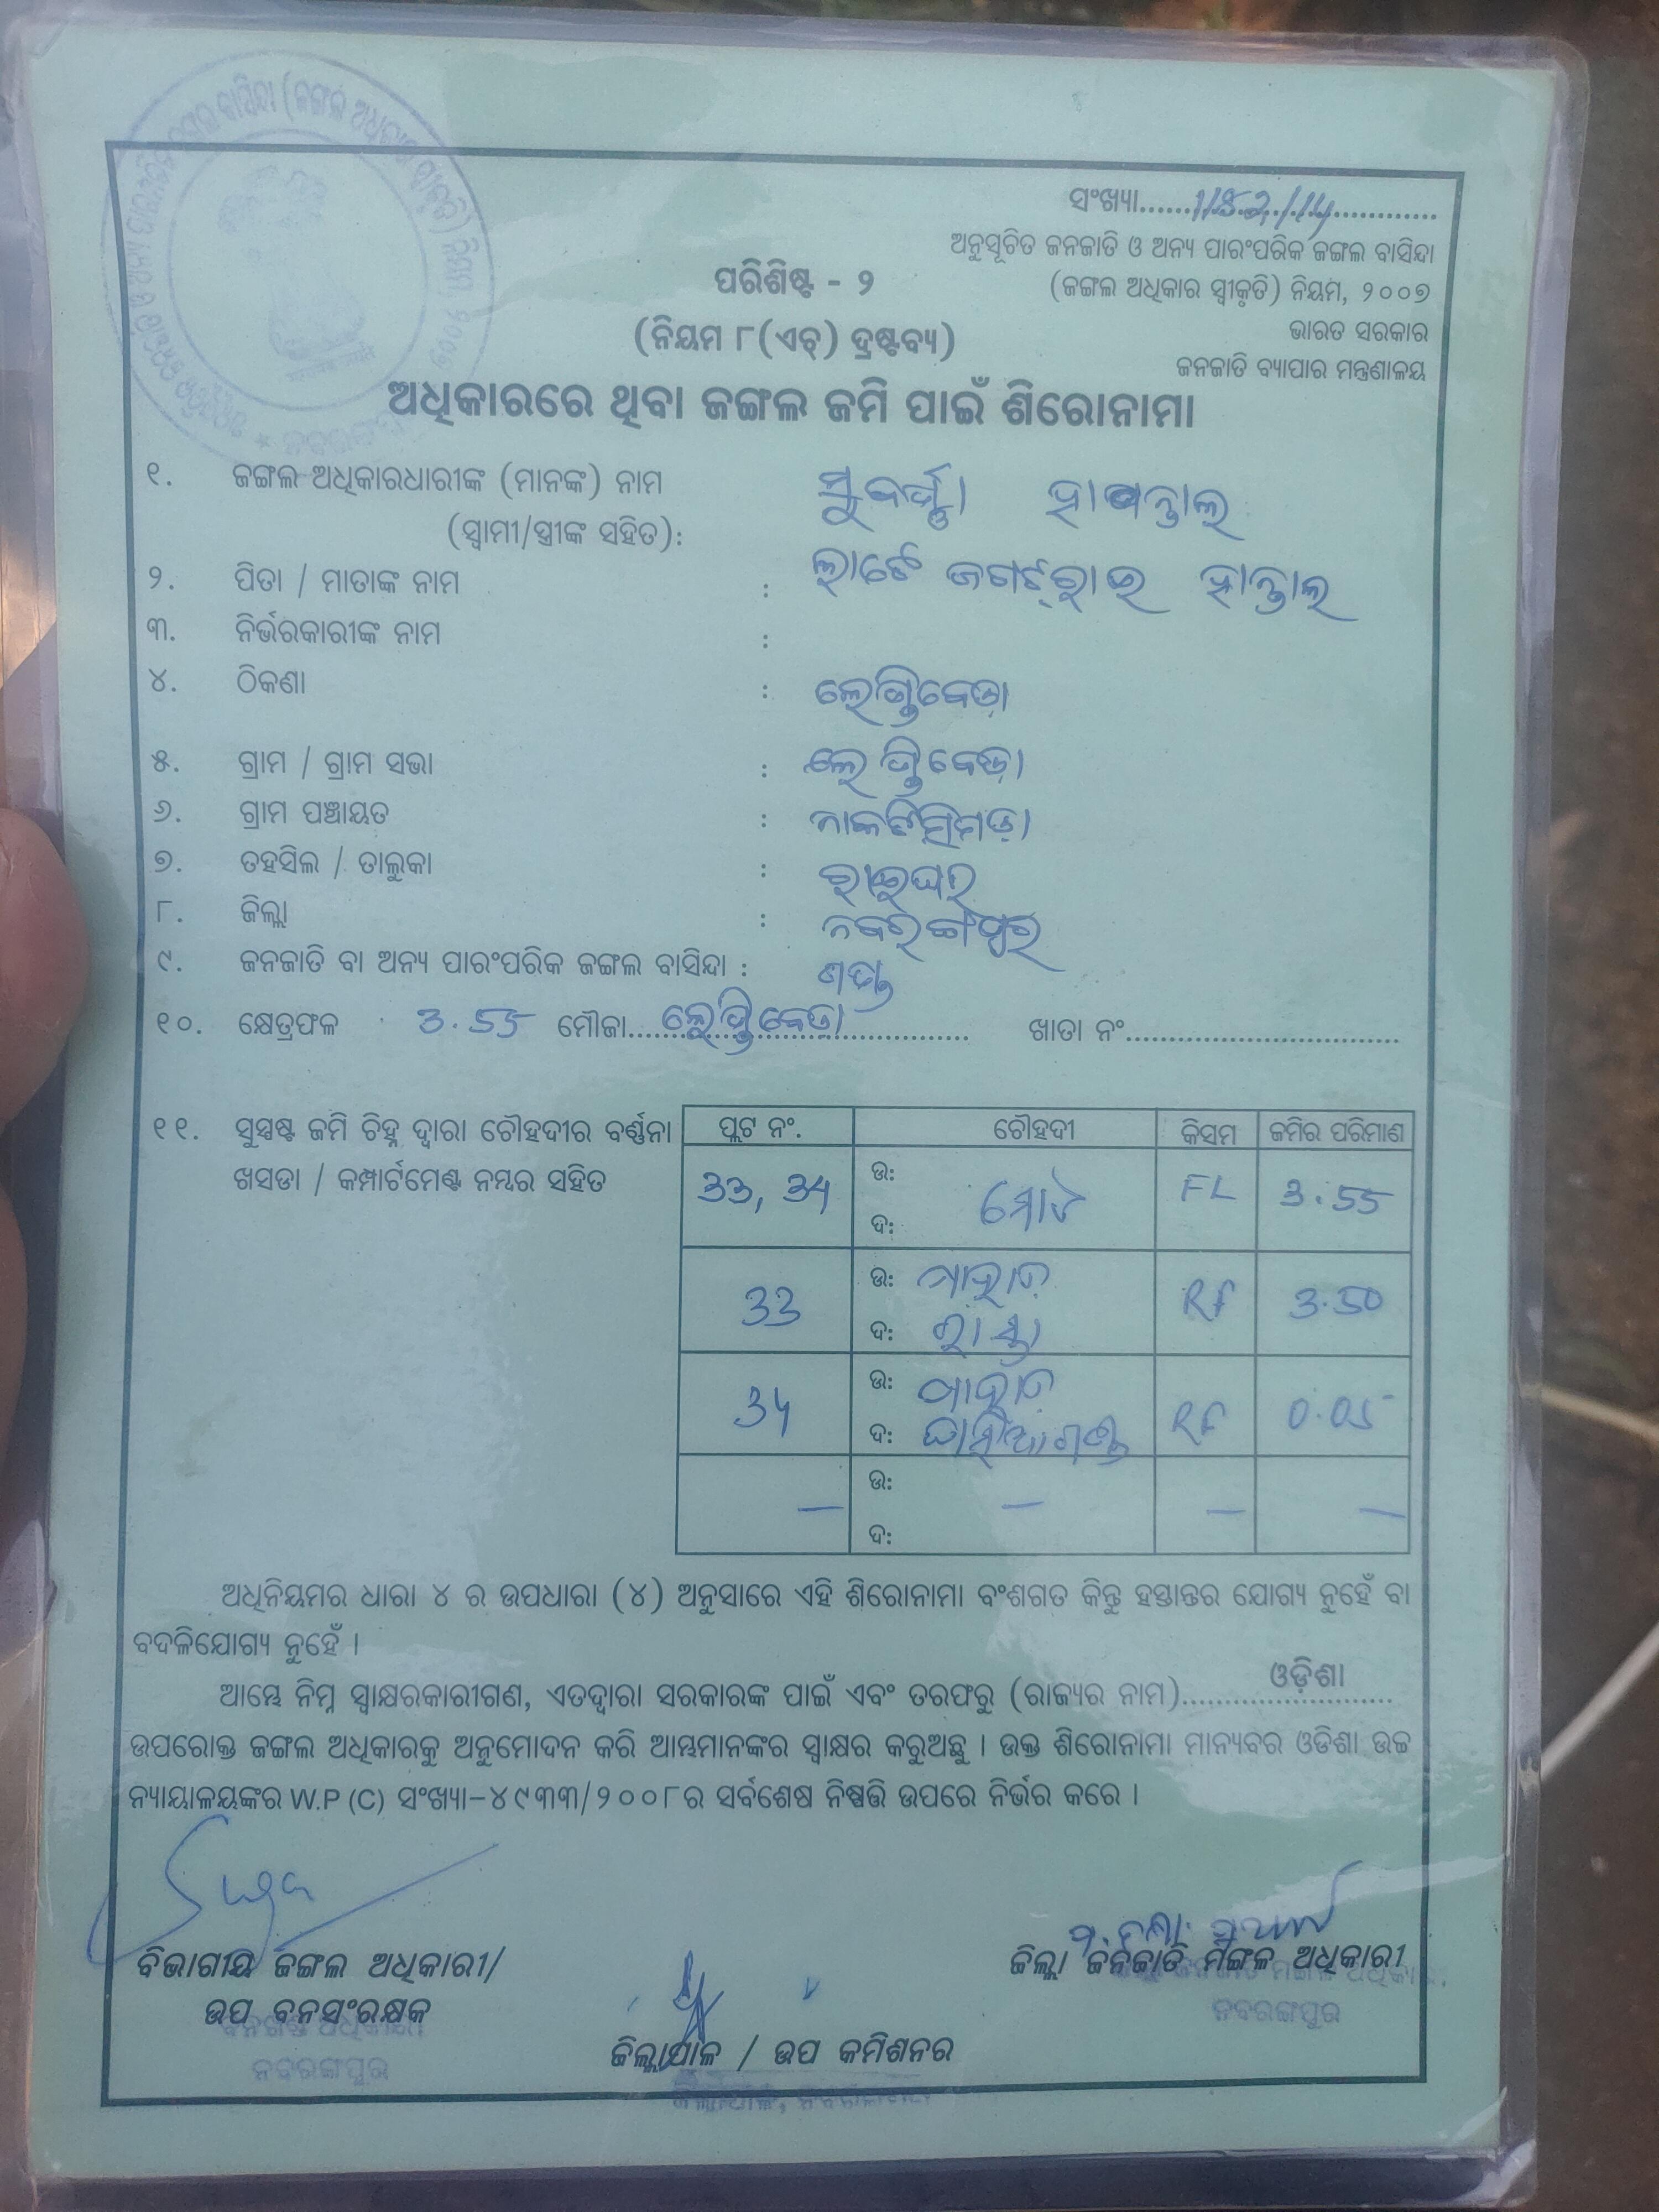 ସଂଖ୍ୟା......1152/14............
ଅନୁସୂଚିତ ଜନଜାତି ଓ ଅନ୍ୟ ପାରଂପରିକ ଜଙ୍ଗଲ ବାସିନ୍ଦା
(ଜଙ୍ଗଲ ଅଧିକାର ସ୍ୱୀକୃତି) ନିୟମ, ୨୦୦୭
ଭାରତ ସରକାର
ଜନଜାତି ବ୍ୟାପାର ମନ୍ତ୍ରଣାଳୟ
ପରିଶିଷ୍ଟ - ୨
(ନିୟମ ୮(ଏଚ୍) ଦ୍ରଷ୍ଟବ୍ୟ)
ଅଧିକାରରେ ଥିବା ଜଙ୍ଗଲ ଜମି ପାଇଁ ଶିରୋନାମା
୧. ଜଙ୍ଗଲ ଅଧିକାରଧାରୀଙ୍କ (ମାନଙ୍କ) ନାମ ସୁବର୍ଣ୍ଣା
(ସ୍ୱାମୀ/ସ୍ତ୍ରୀଙ୍କ ସହିତ):
୨. ପିତା / ମାତାଙ୍କ ନାମ : ହାନ୍ତାଲ
୩. ନିର୍ଭରକାରୀଙ୍କ ନାମ :
୪. ଠିକଣା :
୫. ଗ୍ରାମ / ଗ୍ରାମ ସଭା :
୬. ଗ୍ରାମ ପଞ୍ଚାୟତ : ନାକଟିସିମଡ଼ା
୭. ତହସିଲ / ତାଲୁକା : ରାଇଘର
୮. ଜିଲ୍ଲା : ନବରଙ୍ଗପୁର
୯. ଜନଜାତି ବା ଅନ୍ୟ ପାରଂପରିକ ଜଙ୍ଗଲ ବାସିନ୍ଦା :
୧୦. କ୍ଷେତ୍ରଫଳ 3.55 ମୌଜା.............................. ଖାତା ନଂ..............................
୧୧. ସୁସ୍ପଷ୍ଟ ଜମି ଚିହ୍ନ ଦ୍ୱାରା ଚୌହଦୀର ବର୍ଣ୍ଣନା
ଖସଡା / କମ୍ପାର୍ଟମେଣ୍ଟ ନମ୍ବର ସହିତ
ପ୍ଲଟ ନଂ. ଚୌହଦୀ କିସମ ଜମିର ପରିମାଣ
33, 34 ଉ: ଦ: ମୋଟ FL 3.55
33 ଉ: ପାହାଡ଼ ଦ: ରାସ୍ତା RF 3.50
34 ଉ: ପାହାଡ଼ ଦ: RF 0.05
— ଉ: — ଦ: — —
ଅଧିନିୟମର ଧାରା ୪ ର ଉପଧାରା (୪) ଅନୁସାରେ ଏହି ଶିରୋନାମା ବଂଶଗତ କିନ୍ତୁ ହସ୍ତାନ୍ତର ଯୋଗ୍ୟ ନୁହେଁ ବା
ବଦଳିଯୋଗ୍ୟ ନୁହେଁ ।
ଆମ୍ଭେ ନିମ୍ନ ସ୍ୱାକ୍ଷରକାରୀଗଣ, ଏତଦ୍ୱାରା ସରକାରଙ୍କ ପାଇଁ ଏବଂ ତରଫରୁ (ରାଜ୍ୟର ନାମ)......ଓଡ଼ିଶା......
ଉପରୋକ୍ତ ଜଙ୍ଗଲ ଅଧିକାରକୁ ଅନୁମୋଦନ କରି ଆମ୍ଭମାନଙ୍କର ସ୍ୱାକ୍ଷର କରୁଅଛୁ । ଉକ୍ତ ଶିରୋନାମା ମାନ୍ୟବର ଓଡିଶା ଉଚ୍ଚ
ନ୍ୟାୟାଳୟଙ୍କର W.P (C) ସଂଖ୍ୟା-୪୯୩୩/୨୦୦୮ର ସର୍ବଶେଷ ନିଷ୍ପତ୍ତି ଉପରେ ନିର୍ଭର କରେ ।
ବିଭାଗୀୟ ଜଙ୍ଗଲ ଅଧିକାରୀ/
ଉପ ବନସଂରକ୍ଷକ
ବନଖଣ୍ଡ ଅଧିକାରୀ
ନବରଙ୍ଗପୁର
ଜିଲ୍ଲାପାଳ / ଉପ କମିଶନର
ଜିଲ୍ଲା ଜନଜାତି ମଙ୍ଗଳ ଅଧିକାରୀ
ନବରଙ୍ଗପୁର